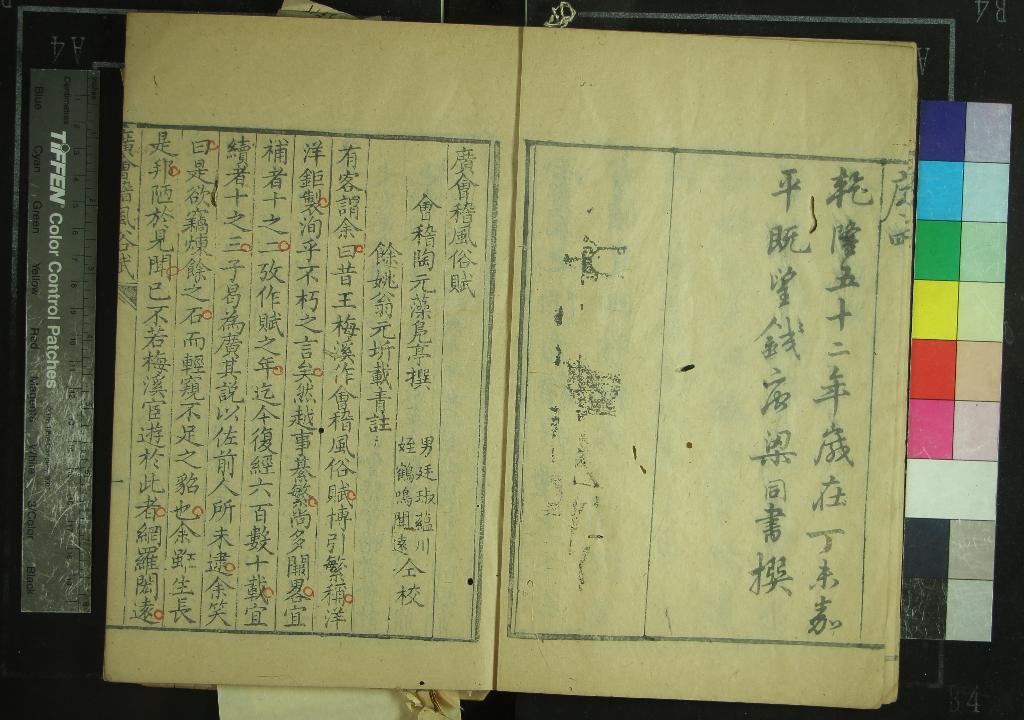 乾隆五十二年歲在丁未嘉
平既望錢唐梁同書撰
廣會稽風俗賦
會稽陶元藻鳧亭撰
男廷琡蘊川
姪鶴鳴聞遠 仝校
餘姚翁元圻載青註
有客謂余曰昔王梅溪作會稽風俗賦博引繁稱洋
洋鉅製洵乎不朽之言矣然越事綦繁尚多闕畧宜
補者十之二攷作賦之年迄今復經六百數十載宜
續者十之三子曷為廣其説以佐前人所未逮余笑
曰是欲竊煉餘之石而輕窺不足之貂也余雖生長
是邦陋於見聞已不若梅溪宦遊於此者網羅閎遠
廣會稽風俗賦
TIFFEN Color Control Patches
Centimetres
Blue
Cyan
Green
Yellow
Red
Magenta
White
3/Color
Black
A4
B4
B4